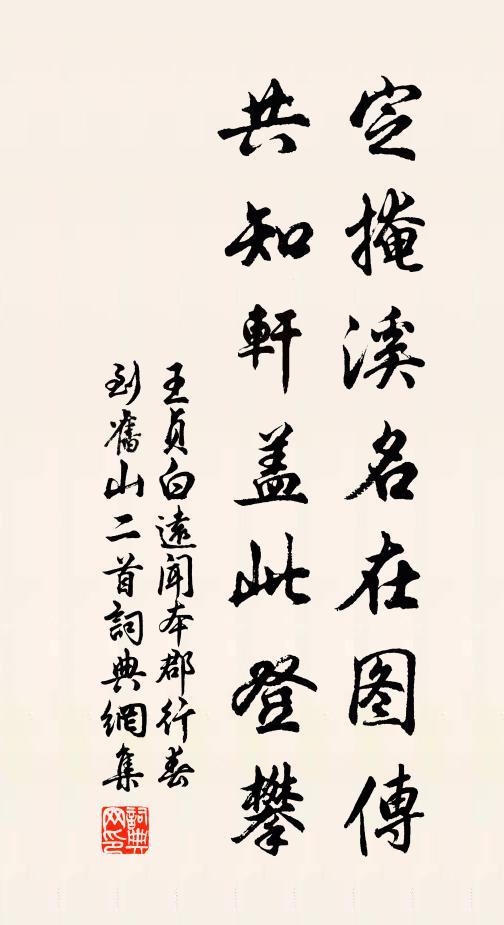 定掩溪名在图傳
共知軒盖此登攀
王貞白遠聞本郡行春
到舊山二首詞典網集
詞典網印